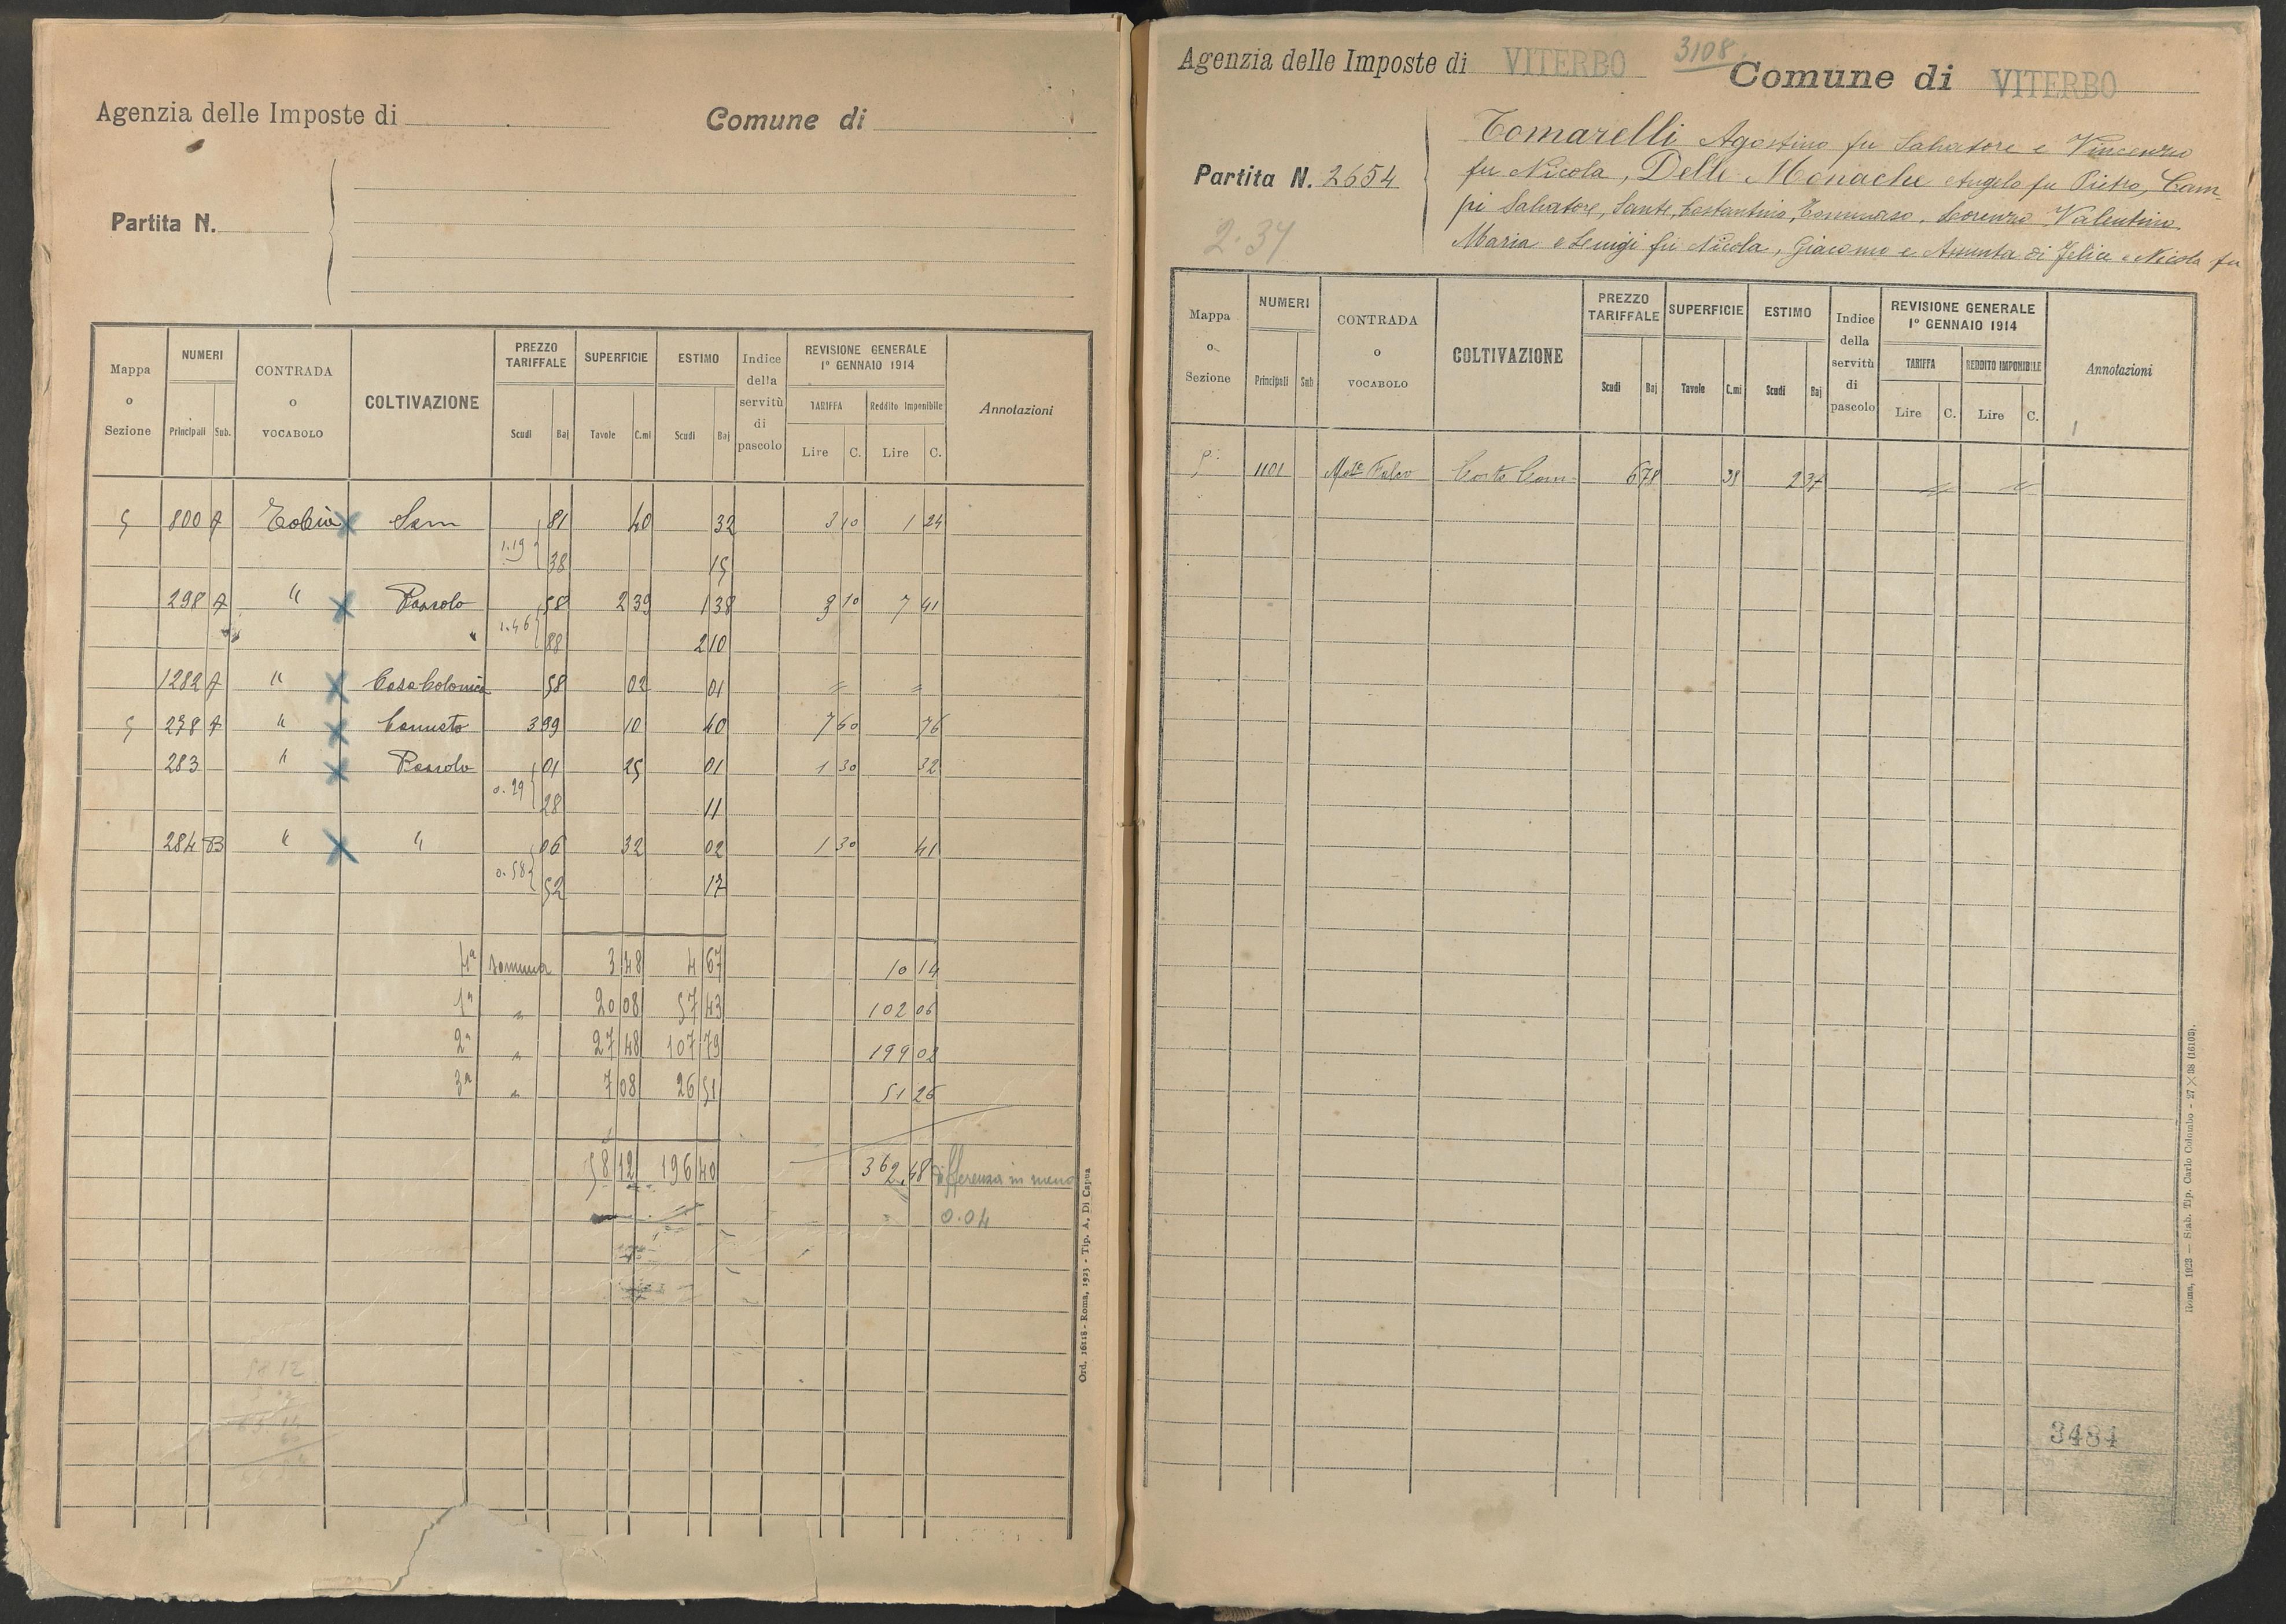 Agenzia delle Imposte di
Comune di
Partita N.
Mappa o Sezione
NUMERI
Principali Sub.
CONTRADA o VOCABOLO
COLTIVAZIONE
PREZZO TARIFFALE
Scudi Baj
SUPERFICIE
Tavole C.mi
ESTIMO
Scudi Baj
Indice della servitù di pascolo
REVISIONE GENERALE 1° GENNAIO 1914
TARIFFA Reddito Imponibile
Lire C. Lire C.
Annotazioni
800 A Sem 81 40 32 3 10 1 24
1.19 38 15
298 A " Pascolo 58 2 39 1 38 3 10 7 41
" 1.46 88 2 10
1282 A " Casa Colonica 58 02 01 = =
238 A " Canneto 3 99 10 40 7 60 76
283 " Pascolo 01 25 01 1 30 32
0.29 28 11
284 B " " 06 32 02 1 30 41
0.58 52 17
4a somma 3 48 4 67 10 14
1a " 20 08 57 43 102 06
2a " 27 48 107 79 199 02
3a " 7 08 26 51 51 26
58 12 196 40 362.48 differenza in meno
0.04
Ord. 16118 - Roma, 1923 - Tip. A. Di Capua
Agenzia delle Imposte di VITERBO 3108 Comune di VITERBO
Tomarelli Agostino fu Salvatore e Vincenzo
Partita N. 2654
fu Nicola, Delle Monache Angelo fu Pietro, Cam-
pi Salvatore, Sante, Costantino, Tommaso, Lorenzo Valentino
2.37
Maria e Luigi fu Nicola, Giacomo e Assunta di Felice e Nicola fu
Mappa o Sezione
NUMERI
Principali Sub
CONTRADA o VOCABOLO
COLTIVAZIONE
PREZZO TARIFFALE
Scudi Baj
SUPERFICIE
Tavole C.mi
ESTIMO
Scudi Baj
Indice della servitù di pascolo
REVISIONE GENERALE 1° GENNAIO 1914
TARIFFA REDDITO IMPONIBILE
Lire C. Lire C.
Annotazioni
1101 6 78 2 37 = =
Roma, 1923 — Stab. Tip. Carlo Colombo - 27 × 38 (16103).
3484